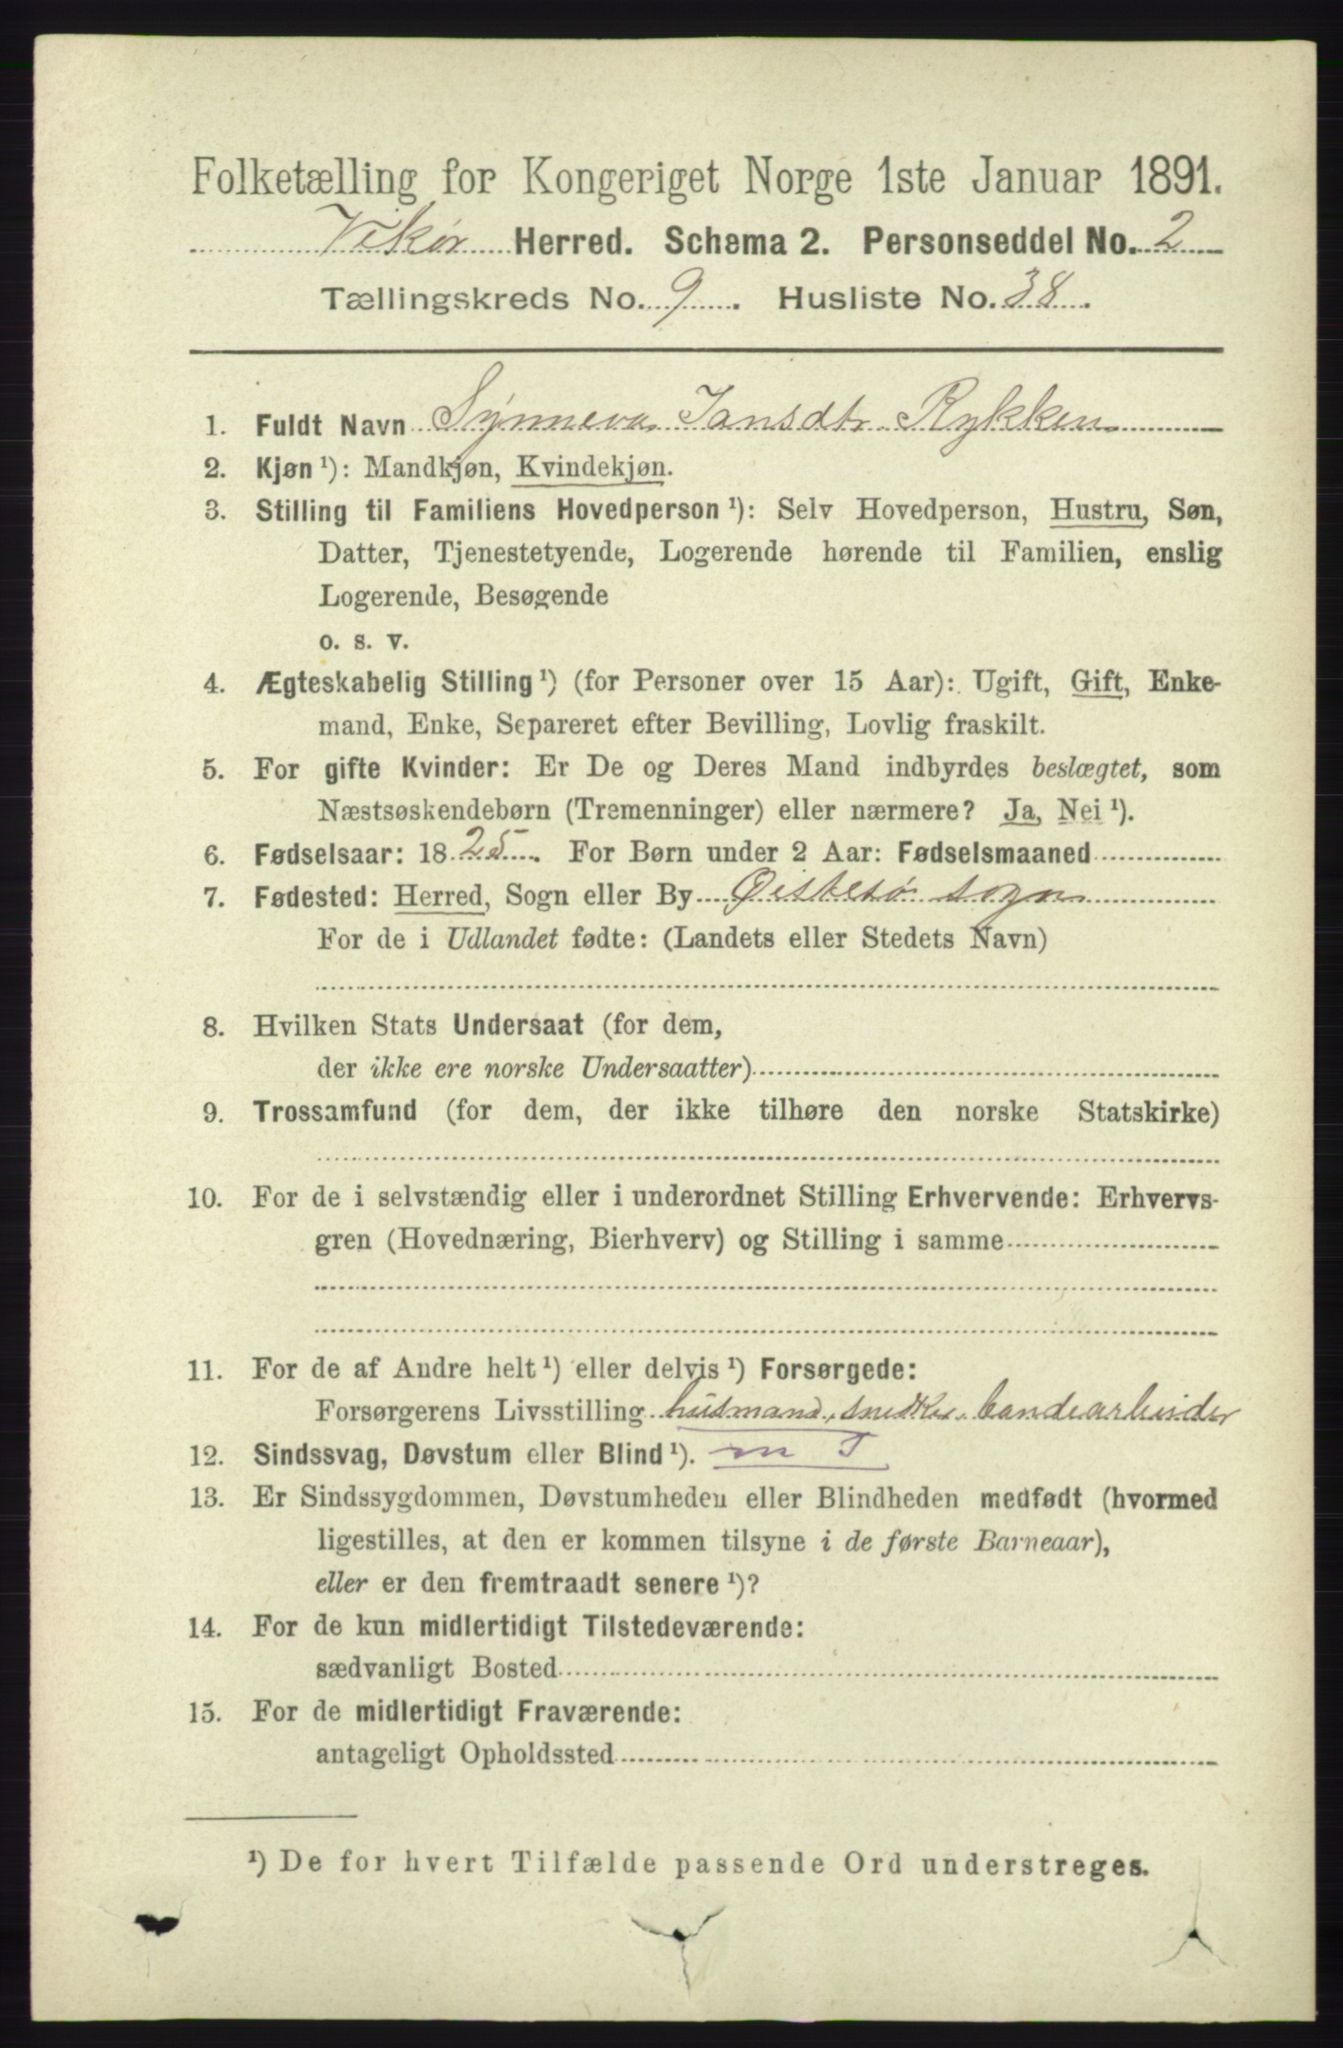 Folketælling for Kongeriget Norge 1ste Januar 1891.
Vikør Herred. Schema 2. Personseddel No. 2
Tællingskreds No. 9. Husliste No. 38.
1. Fuldt Navn Synneva Jansdtr Rykken
2. Kjøn ¹): Mandkjøn, Kvindekjøn.
3. Stilling til Familiens Hovedperson ¹): Selv Hovedperson, Hustru, Søn,
Datter, Tjenestetyende, Logerende hørende til Familien, enslig
Logerende, Besøgende
o. s. v.
4. Ægteskabelig Stilling ¹) (for Personer over 15 Aar): Ugift, Gift, Enke-
mand, Enke, Separeret efter Bevilling, Lovlig fraskilt.
5. For gifte Kvinder: Er De og Deres Mand indbyrdes beslægtet, som
Næstsøskendebørn (Tremenninger) eller nærmere? Ja, Nei ¹).
6. Fødselsaar: 1825. For Børn under 2 Aar: Fødselsmaaned
7. Fødested: Herred, Sogn eller By Øistesø sogn
For de i Udlandet fødte: (Landets eller Stedets Navn)
8. Hvilken Stats Undersaat (for dem,
der ikke ere norske Undersaatter)
9. Trossamfund (for dem, der ikke tilhøre den norske Statskirke)
10. For de i selvstændig eller i underordnet Stilling Erhvervende: Erhvervs-
gren (Hovednæring, Bierhverv) og Stilling i samme
11. For de af Andre helt ¹) eller delvis ¹) Forsørgede:
Forsørgerens Livsstilling husmand, snedker,
12. Sindssvag, Døvstum eller Blind ¹). m T
13. Er Sindssygdommen, Døvstumheden eller Blindheden medfødt (hvormed
ligestilles, at den er kommen tilsyne i de første Barneaar),
eller er den fremtraadt senere ¹)?
14. For de kun midlertidigt Tilstedeværende:
sædvanligt Bosted
15. For de midlertidigt Fraværende:
antageligt Opholdssted
¹) De for hvert Tilfælde passende Ord understreges.